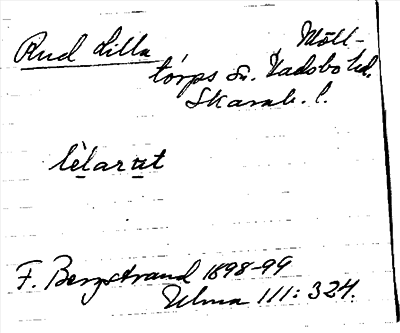 Rud Lilla Mölltorps sn. Vadsbo hd.
Skarab. l.
lèlarut
F. Bergstrand 1898-99
Ulma 111: 324.